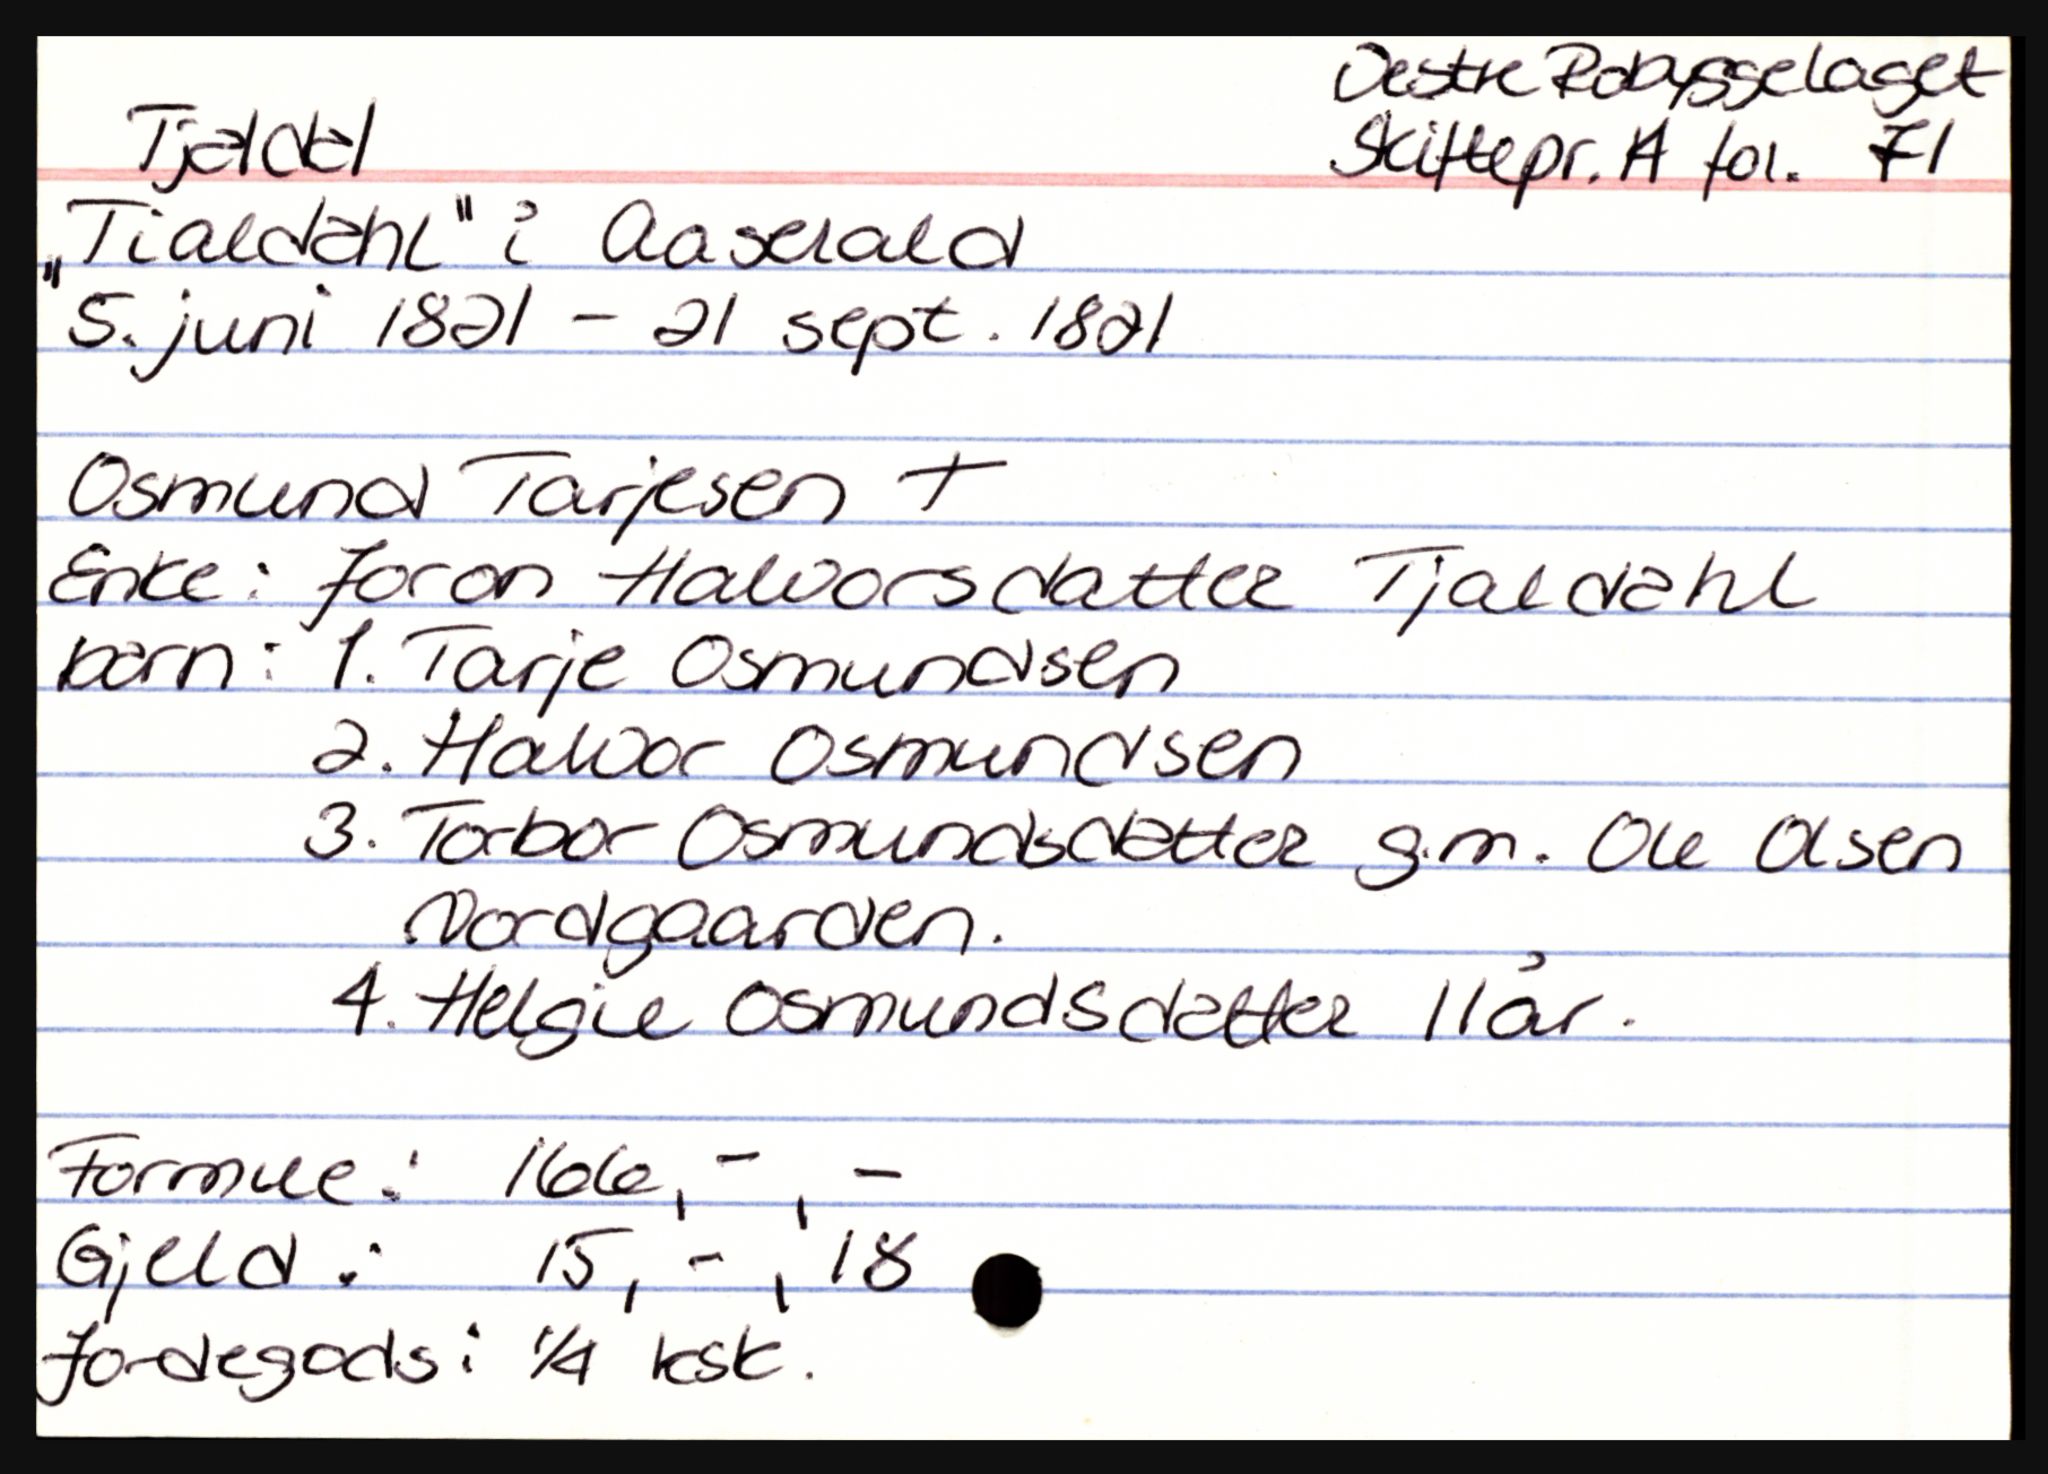 Vestre Robyggelaget
Tjaldal
Skiftepr. A fol. 71
"Tialdahl" i Aaserald
"5. juni 1821 - 21 sept. 1821
Osmund Tarjesen +
Enke: Joron Halvorsdatter Tjaldahl
barn: 1. Tarje Osmundsen
2. Halvor Osmundsen
3. Torbor Osmundsdatter g.m. Ole Olsen
Nordgaarden.
4. Helgie Osmundsdatter 11 år.
Formue: 166, -, -
Gjeld: 15, -, 18
Jordegods: 1/4 ksk.